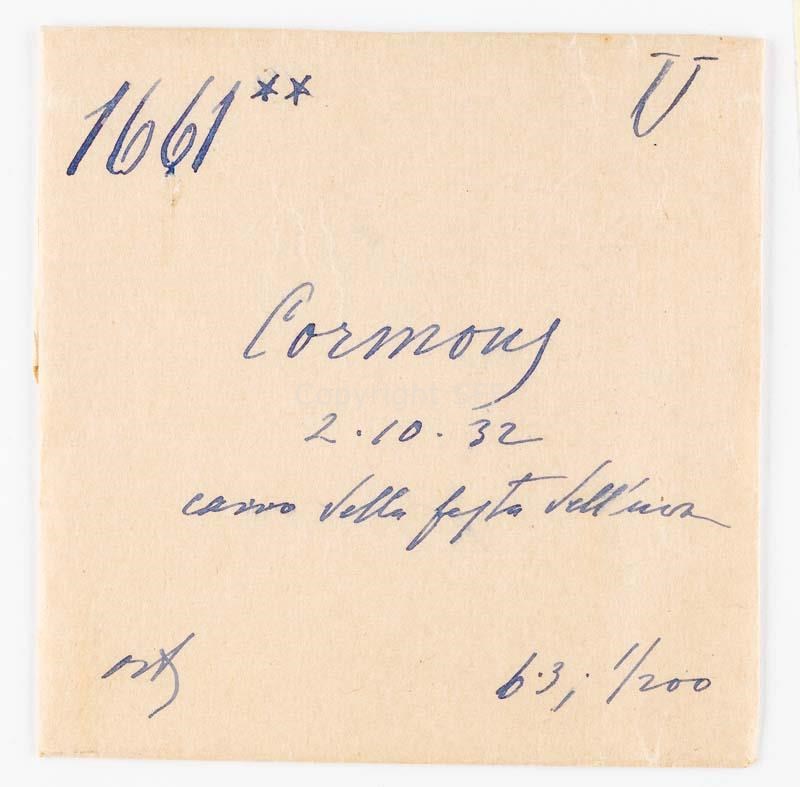 1661** U
Cormons
2.10.32
carro della festa dell'uva
6.3; 1/200